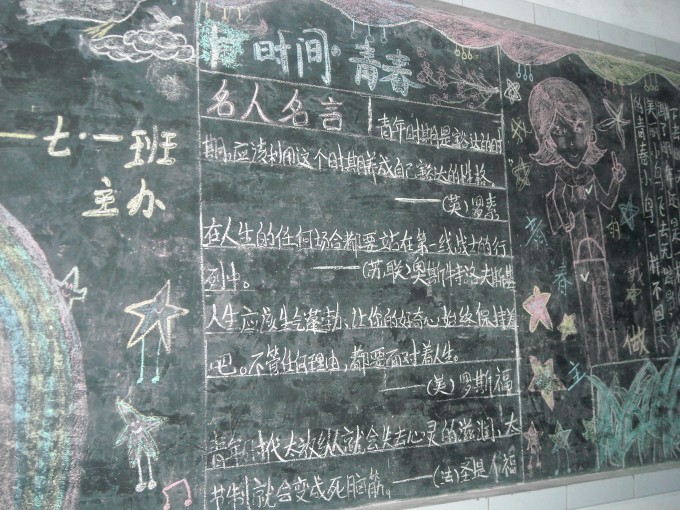 七·一班
主办
时间·青春
名人名言
青年时期是豁达的时
期,应该利用这个时期养成自己豁达的性格
——(英)罗素
在人生的任何场合都要站在第一线战士的行
列中。——(苏联)奥斯特洛夫斯基
人生应该生气蓬勃、让你的好奇心始终保持着
吧。不管任何理由,都要面对着人生。
——(美)罗斯福
青年时代太放纵就会失去心灵的滋润,太
节制就会变成死脑筋。——(法)圣提 福
青
春
的
做
主
的青春小鸟一样不回来